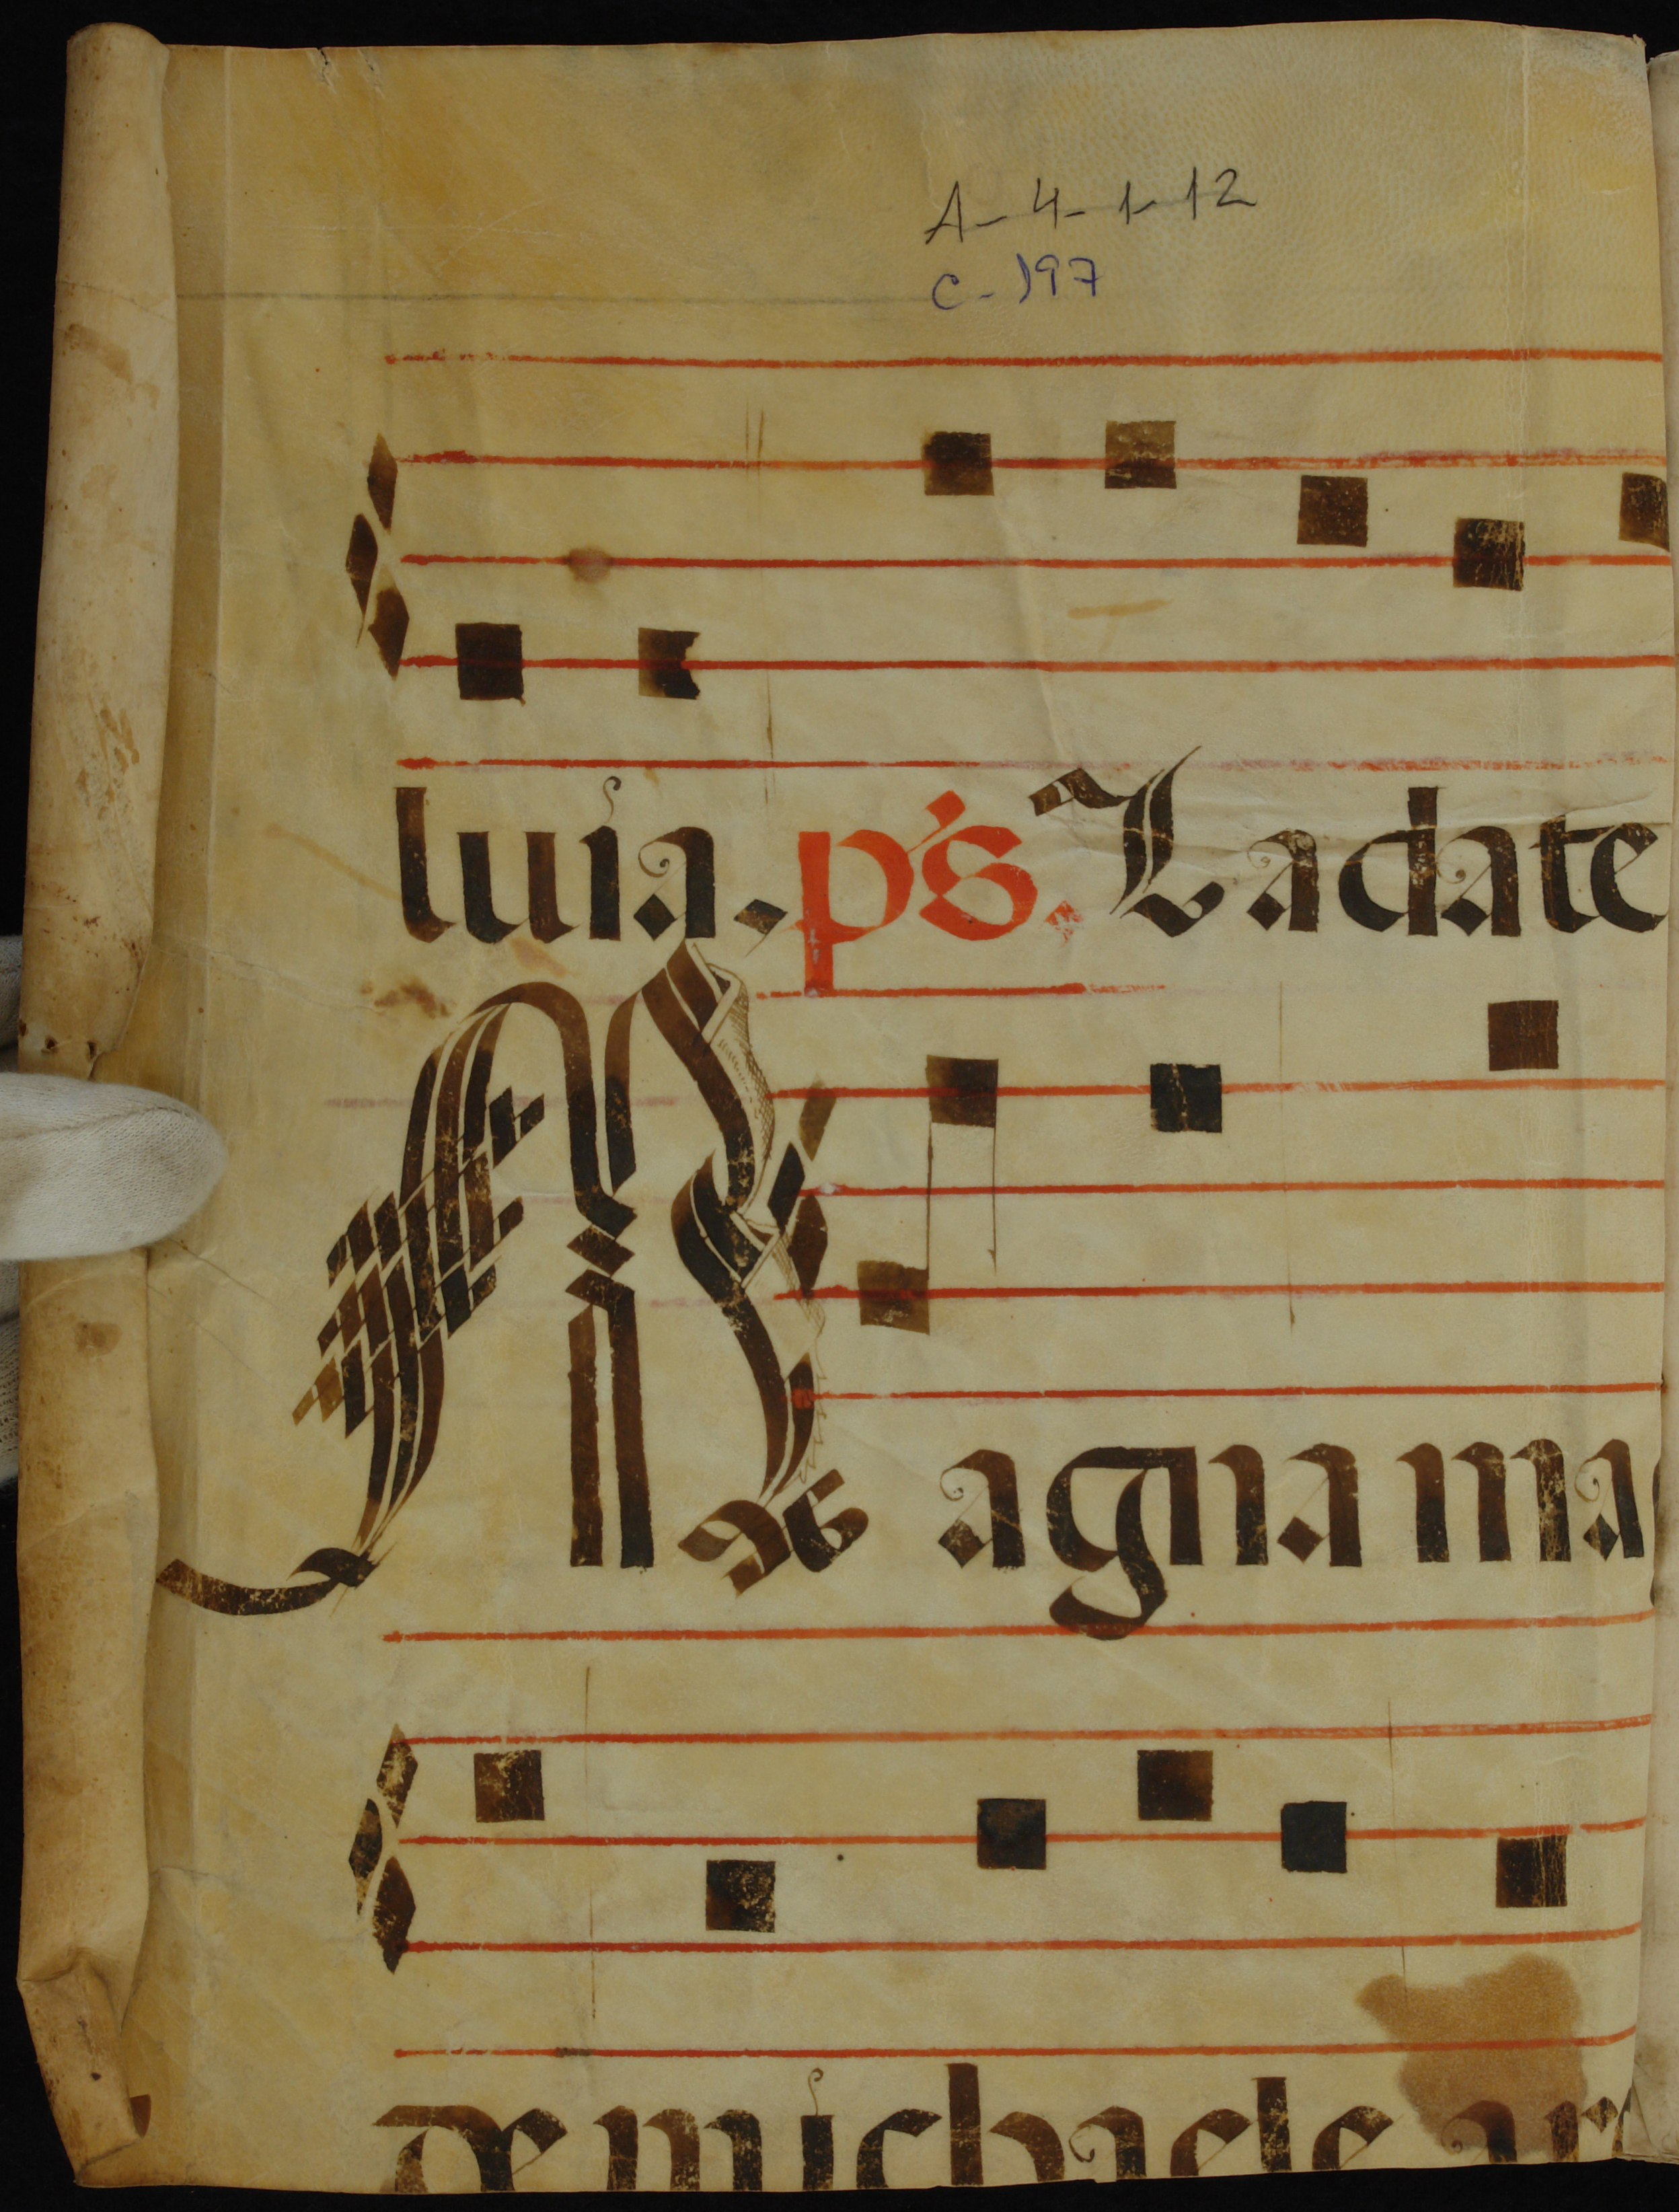 A-4-1-12
C-197
luia. ps. Ladate
Magna ma
de michaele ar